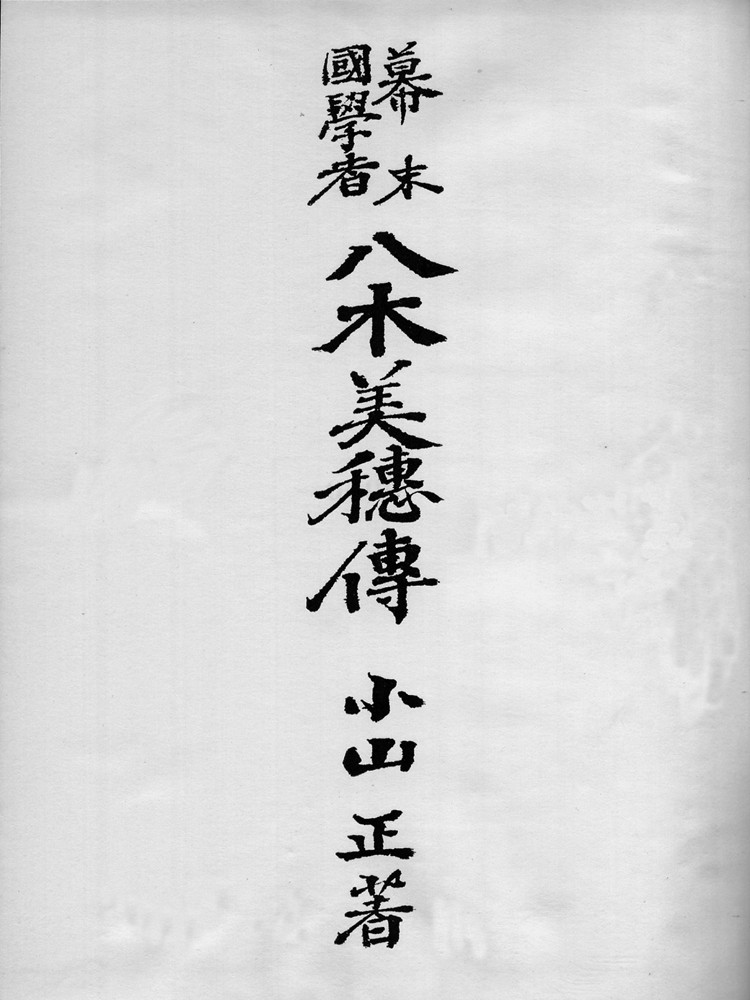 幕末
國學者
八木美穗傳
小山正著